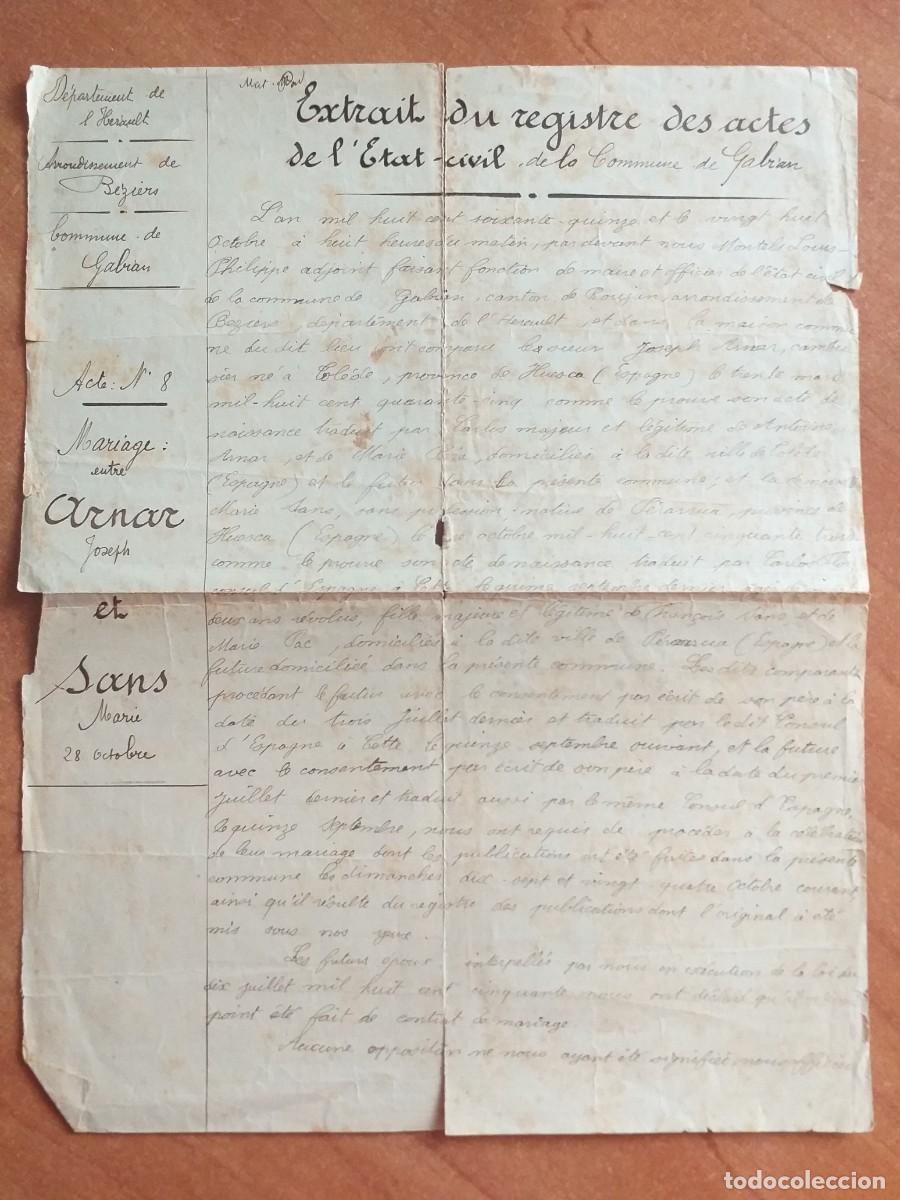 Département de
l'Hérault
Arrondissement de
Beziers
Commune de
Gabian
Acte: N° 8
Mariage:
entre
Arnar
Joseph
et
Sans
Marie
28 octobre
Extrait du registre des actes
de l'Etat-civil de la Commune de Gabian
L'an mil huit cent soixante-quinze et le vingt huit
Octobre à huit heures du matin, par devant nous Louis-
Philippe adjoint faisant fonction de maire et officier de l'état civil
de la commune de Gabian, canton de Roujan, arrondissement de
Beziers, département de l'Herault, et dans la maison commu
ne du dit lieu ont comparu le sieur Joseph Arnar,
né à Tolède, province de Huesca (Espagne) le trente
mil-huit cent quarante-cinq comme le prouve son acte de
naissance traduit par majeur et légitime de Antoine
Arnar, et de Marie domiciliés à la dite ville de
(Espagne) et le futur dans la présente commune; et la
Marie Sans, sans profession native de province de
Huesca (Espagne) le octobre mil-huit-cent cinquante trois
comme le prouve son acte de naissance traduit par
consul d'Espagne à Cette le quinze septembre dernier
deux ans révolus, fille majeure et légitime de François Sans et de
Marie Pac, domiciliés à la dite ville de (Espagne) et la
future domiciliée dans la présente commune. Les dits comparants
procédant le futur avec le consentement par écrit de son père à la
date du trois Juillet dernier et traduit par le dit Consul
d'Espagne à Cette le quinze septembre suivant, et la future
avec le consentement par écrit de son père à la date du premier
juillet dernier et traduit aussi par le même Consul d'Espagne,
le quinze Septembre, nous ont requis de procéder à la célébration
de leur mariage dont les publications ont été faites dans la présente
commune les dimanches dix-sept et vingt quatre octobre courant,
ainsi qu'il résulte du registre des publications dont l'original à été
mis sous nos yeux.
Les futurs époux interpellés par nous en exécution de la loi du
dix juillet mil huit cent cinquante nous ont déclaré qu'il
point été fait de contrat de mariage.
Aucune opposition ne nous ayant été signifiée, nous officier
todocoleccion